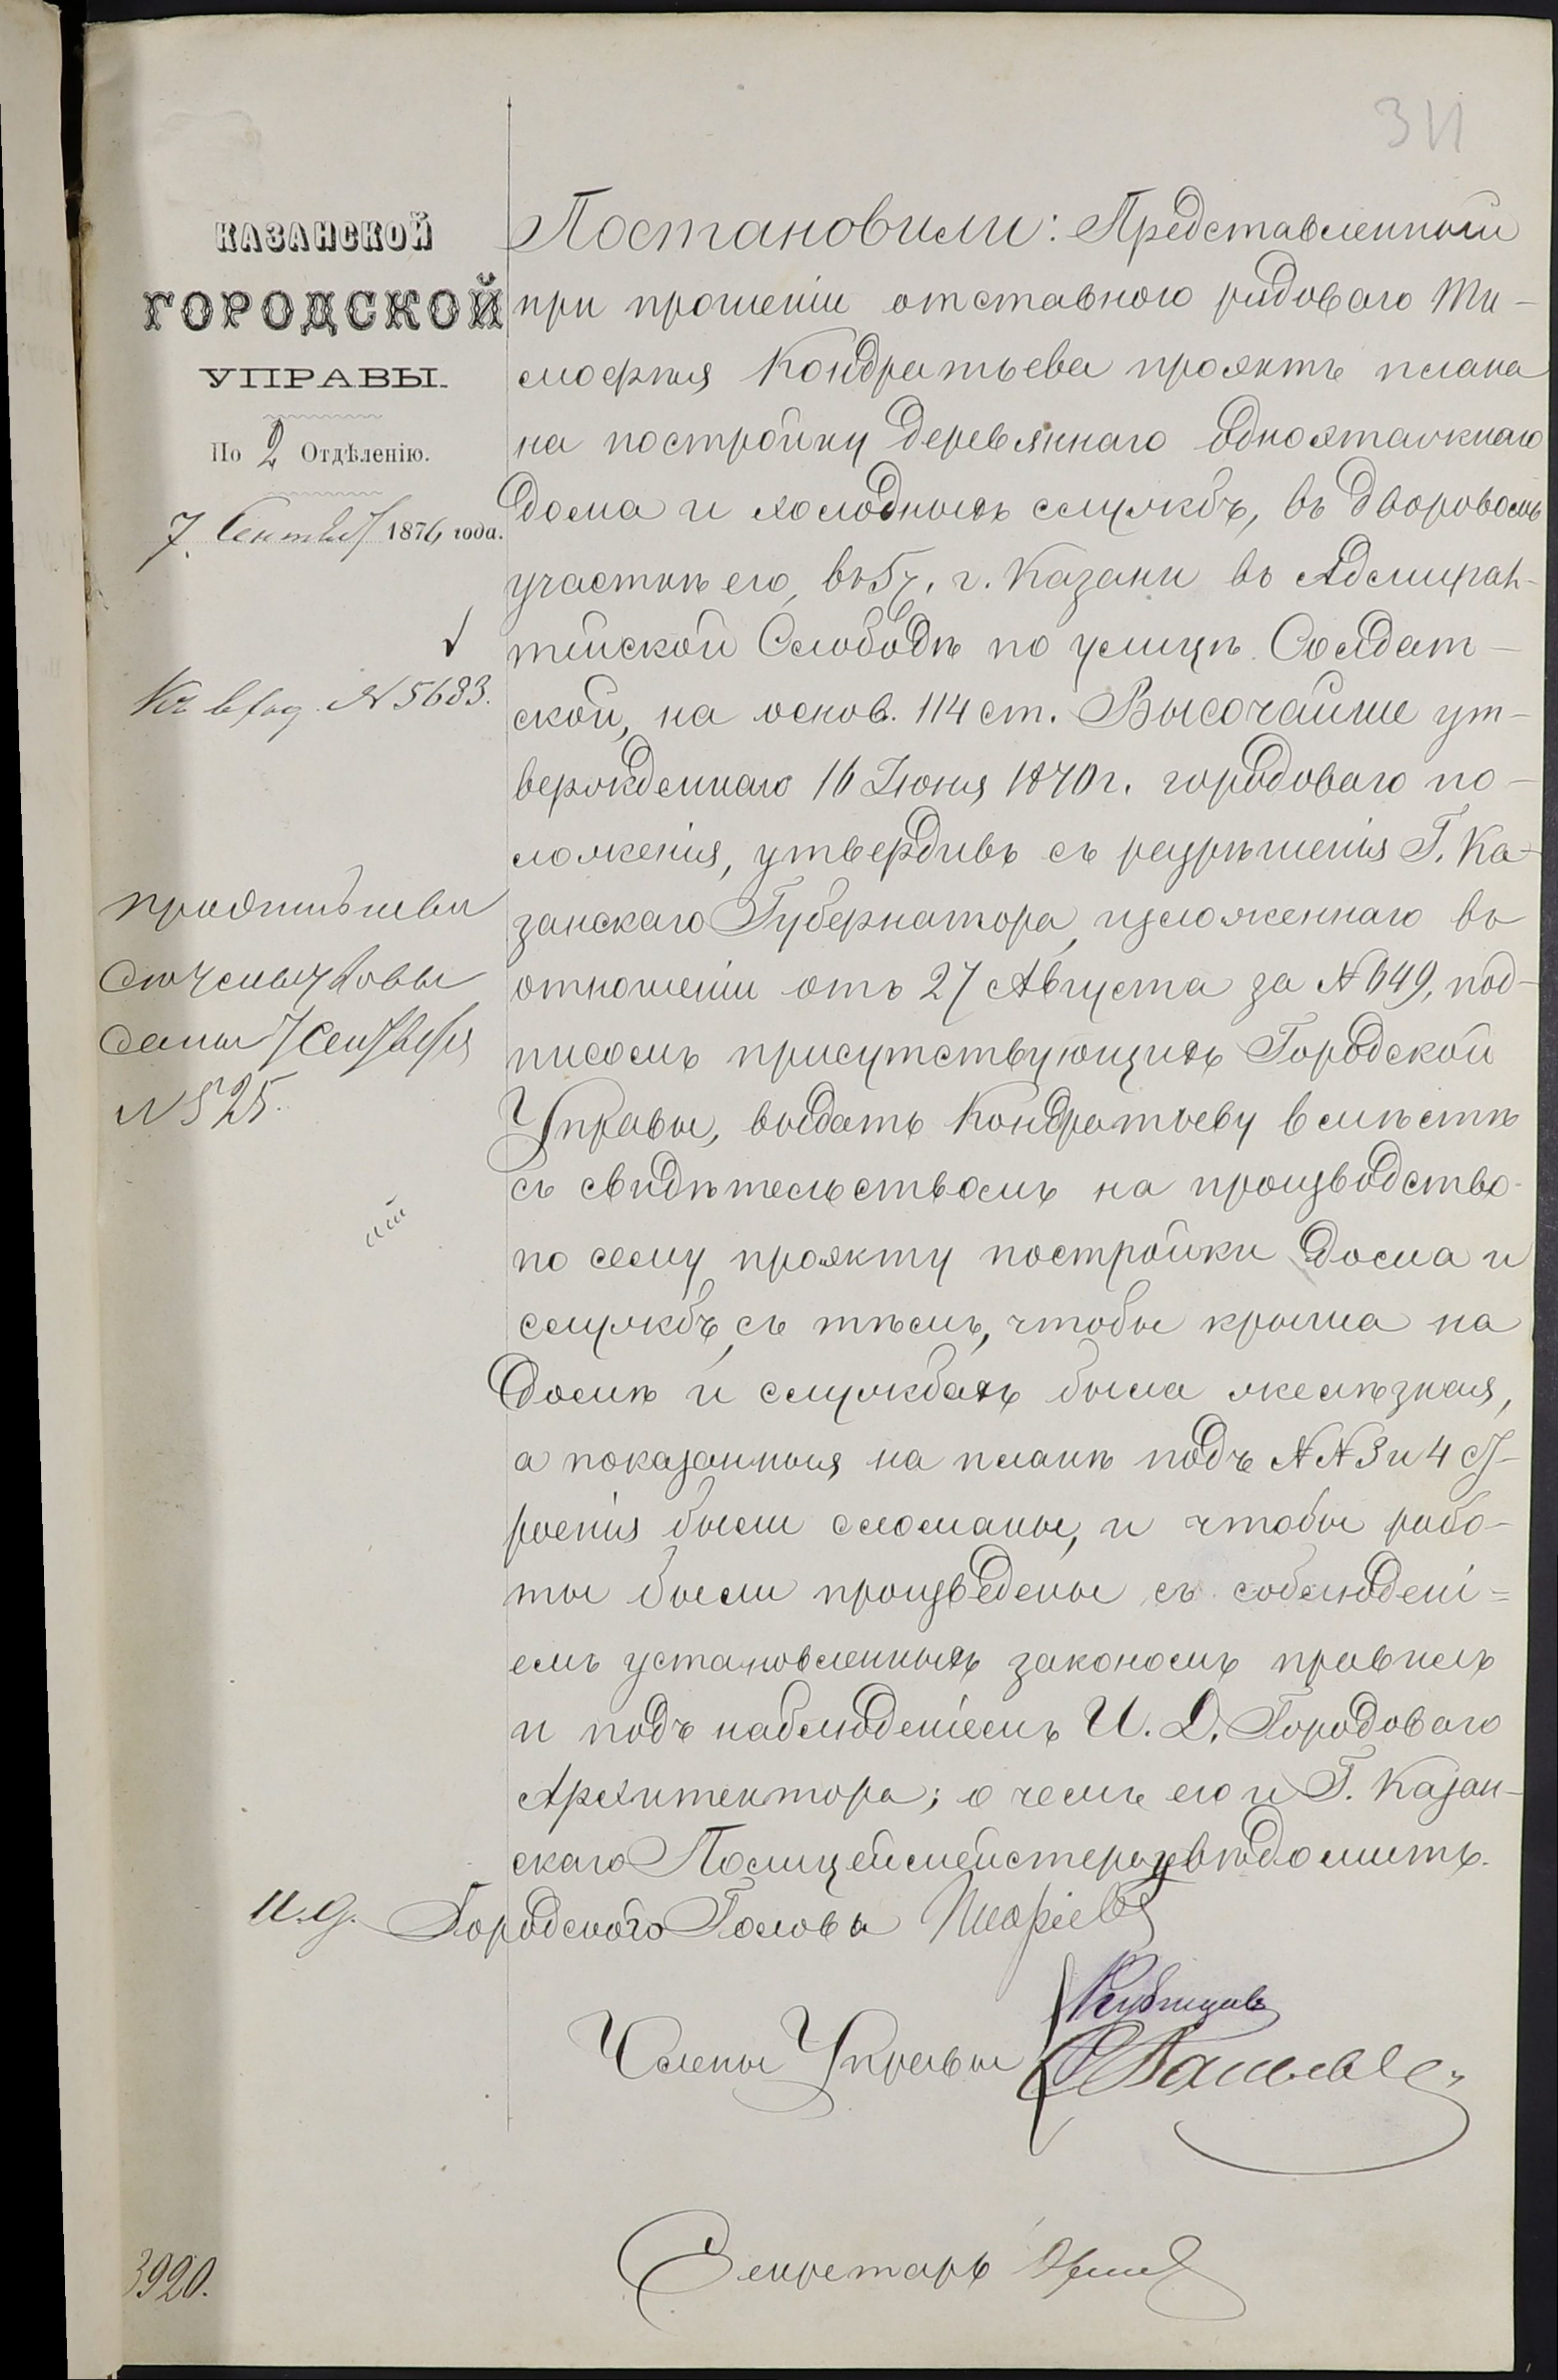 311
КАЗАНСКОЙ
ГОРОДСКОЙ
УПРАВЫ.
По 2 Отдѣленію.
7 Сентября 1876 года.
Къ вход. № 5683.
7 Сентября
№ 525.
Постановили: Представленный
при прошеніи отставного рядоваго Ти-
мофѣя Кондратьева проэктъ плана
на постройку деревяннаго одноэтажнаго
дома и холодныхъ службъ, въ дворовомъ
участкѣ его, въ 5 ч. г. Казани въ Адмирал-
тейской Слободѣ по улицѣ Солдат-
ской, на основ. 114 ст. Высочайше ут-
вержденнаго 16 Іюня 1870 г. городоваго по-
ложенія, утвердивъ съ разрѣшенія Г. Ка-
занскаго Губернатора, изложеннаго въ
отношеніи отъ 27 Августа за № 649, под-
писомъ присутствующихъ Городской
Управы, выдать Кондратьеву вмѣстѣ
съ свидѣтельствомъ на производство
по сему проэкту постройки дома и
службъ, съ тѣмъ, чтобы крыша на
домѣ и службахъ была желѣзная,
а показанныя на планѣ подъ №№ 3 и 4 ст-
роенія были сломаны, и чтобы рабо-
ты были произведены съ соблюдені=
емъ установленныхъ закономъ правилъ
и подъ наблюденіемъ И. Д. Городоваго
Архитектора; о чемъ его и Г. Казан-
скаго Полицеймейстера увѣдомить.
И. д. Городского Головы
Члены Управы
Секретарь
3920.